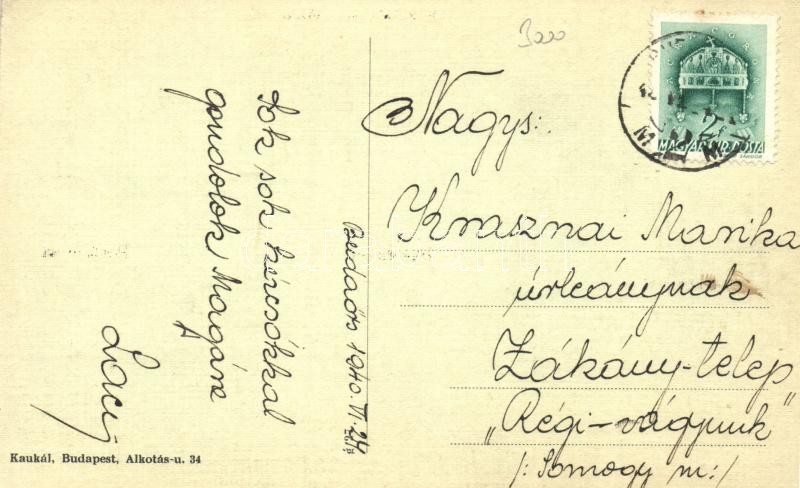 3000
MAGYAR KIR. POSTA
Nagys:
Krasznai Marika
úrleánynak
Zákány-telep
"Régi-vágyunk"
/: Somogy m:/
Budaörs 1940. VI. 24
Sok sok kézcsókkal
gondolok Magára
Laci
Kaukál, Budapest, Alkotás-u. 34